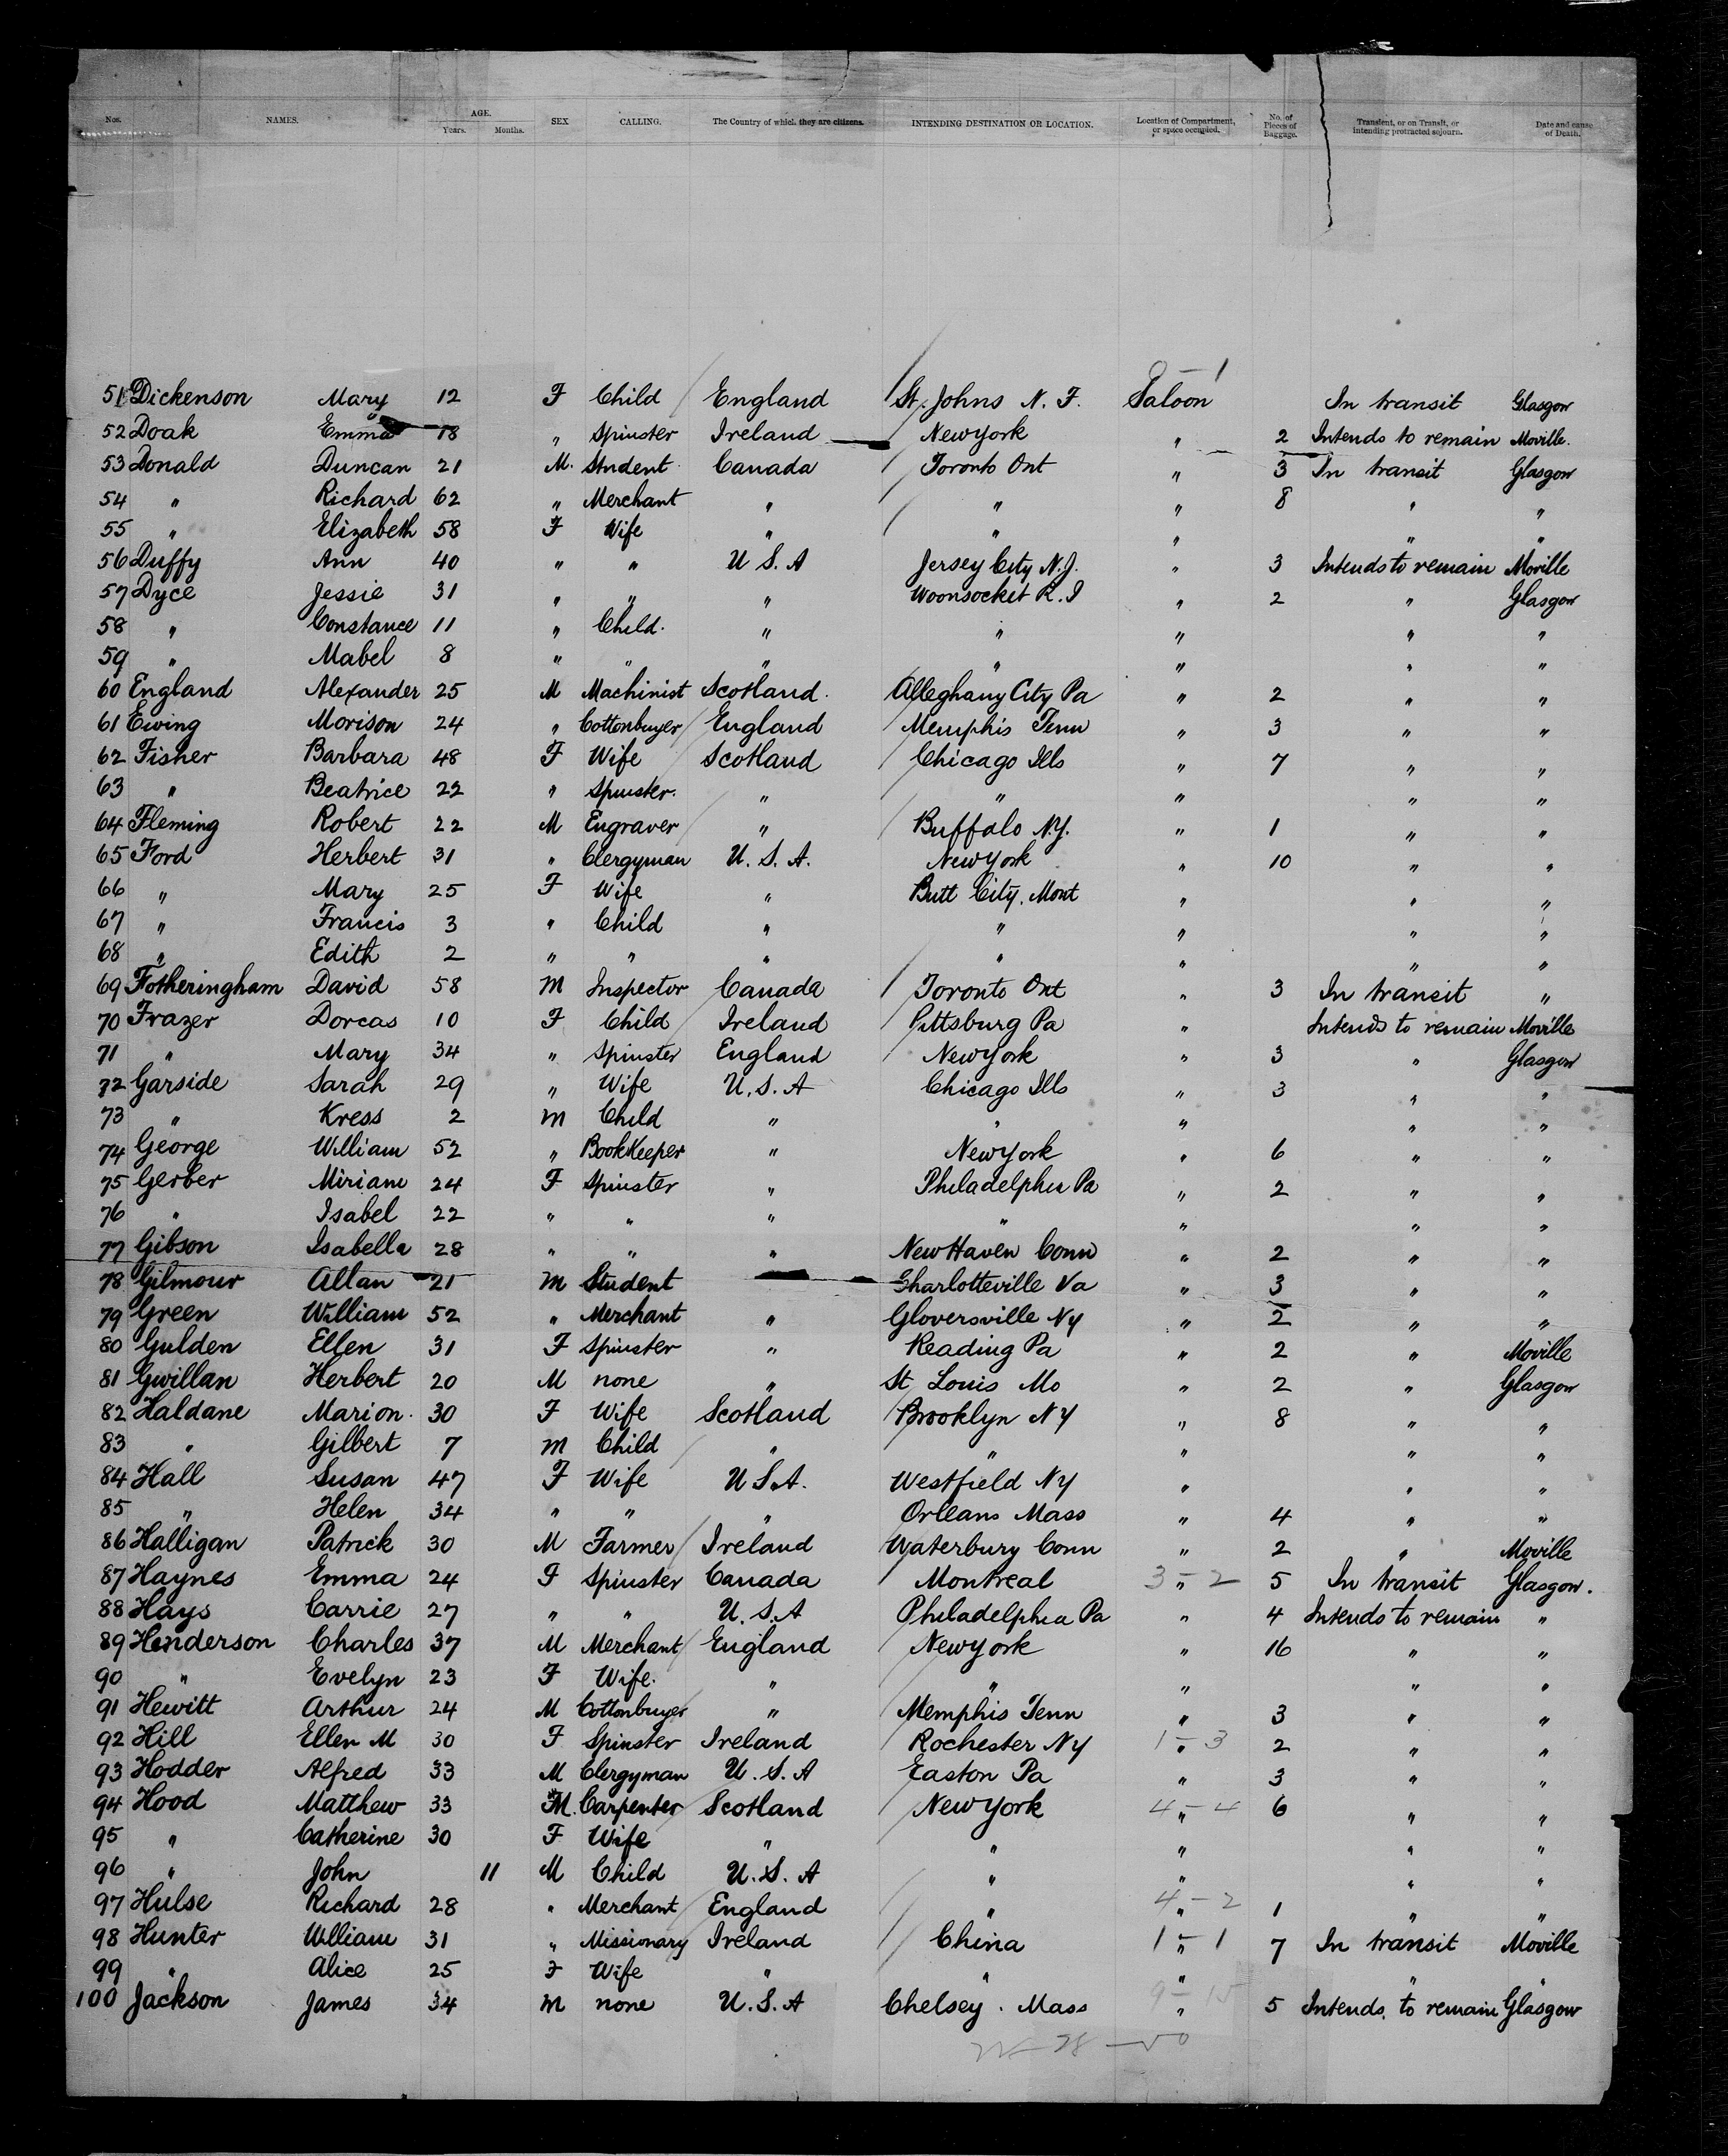 Nos. NAMES. AGE. Years. Months. SEX CALLING. The Country of which they are citizens. INTENDING DESTINATION OR LOCATION. Location of Compartment, or space occupied. No. of Pieces of Baggage. Transient, or on Transit, or intending protracted sojourn. Date and cause of Death.
51 Dickenson Mary 12 F Child England St Johns N. F. Saloon In transit Glasgow
52 Doak Emma 18 " Spinster Ireland New York " 2 Intends to remain Moville.
53 Donald Duncan 21 M. Student Canada Toronto Ont " 3 In transit Glasgow
54 " Richard 62 " Merchant " " " 8 " "
55 " Elizabeth 58 F Wife " " " " "
56 Duffy Ann 40 " " U S. A Jersey City N.J. " 3 Intends to remain Moville
57 Dyce Jessie 31 " " " Woonsocket R. I " 2 " Glasgow
58 " Constance 11 " Child. " " " " "
59 " Mabel 8 " " " " " " "
60 England Alexander 25 M Machinist Scotland. Alleghany City Pa " 2 " "
61 Ewing Morison 24 " Cottonbuyer England Memphis Tenn " 3 " "
62 Fisher Barbara 48 F Wife Scotland Chicago Ills " 7 " "
63 " Beatrice 22 " Spinster. " " " " "
64 Fleming Robert 22 M Engraver " Buffalo N.Y. " 1 " "
65 Ford Herbert 31 " Clergyman U. S. A. New York " 10 " "
66 " Mary 25 F Wife " Butt City. Mont " " "
67 " Francis 3 " Child " " " " "
68 " Edith 2 " " " " " " "
69 Fotheringham David 58 M Inspector Canada Toronto Ont " 3 In transit "
70 Frazer Dorcas 10 F Child Ireland Pittsburg Pa " Intends to remain Moville
71 " Mary 34 " Spinster England New York " 3 " Glasgow
72 Garside Sarah 29 " Wife U. S. A Chicago Ills " 3 " "
73 " Kress 2 M Child " " " " "
74 George William 52 " BookKeeper " New York " 6 " "
75 Gerber Miriam 24 F Spinster " Philadelphia Pa " 2 " "
76 " Isabel 22 " " " " " " "
77 Gibson Isabella 28 " " " New Haven Conn " 2 " "
78 Gilmour Allan 21 M Student Charlotteville Va " 3 " "
79 Green William 52 " Merchant " Gloversville NY " 2 " "
80 Gulden Ellen 31 F Spinster " Reading Pa " 2 " Moville
81 Gwillan Herbert 20 M none " St Louis Mo " 2 " Glasgow
82 Haldane Marion. 30 F Wife Scotland Brooklyn NY " 8 " "
83 " Gilbert 7 M Child " " " " "
84 Hall Susan 47 F Wife U S.A. Westfield NY " " "
85 " Helen 34 " " " Orleans Mass " 4 " "
86 Halligan Patrick 30 M Farmer Ireland Waterbury Conn " 2 " Moville
87 Haynes Emma 24 F Spinster Canada Montreal 3 " 2 5 In transit Glasgow.
88 Hays Carrie 27 " " U. S. A Philadelphia Pa " 4 Intends to remain "
89 Henderson Charles 37 M Merchant England New York " 16 " "
90 " Evelyn 23 F Wife. " " " " "
91 Hewitt Arthur 24 M Cottonbuyer " Memphis Tenn " 3 " "
92 Hill Ellen M 30 F Spinster Ireland Rochester NY 1 - 3 " 2 " "
93 Hodder Alfred 33 M Clergyman U. S. A Easton Pa " 3 " "
94 Hood Matthew 33 M. Carpenter Scotland New York 4 - 4 " 6 " "
95 " Catherine 30 F Wife " " " " "
96 " John 11 M Child U. S. A " " " "
97 Hulse Richard 28 " Merchant England " 4 - 2 " 1 " "
98 Hunter William 31 " Missionary Ireland China 1 - 1 " 7 In transit Moville
99 " Alice 25 F Wife " " " " "
100 Jackson James 34 M none U. S. A Chelsey. Mass 9 - 15 " 5 Intends to remain Glasgow